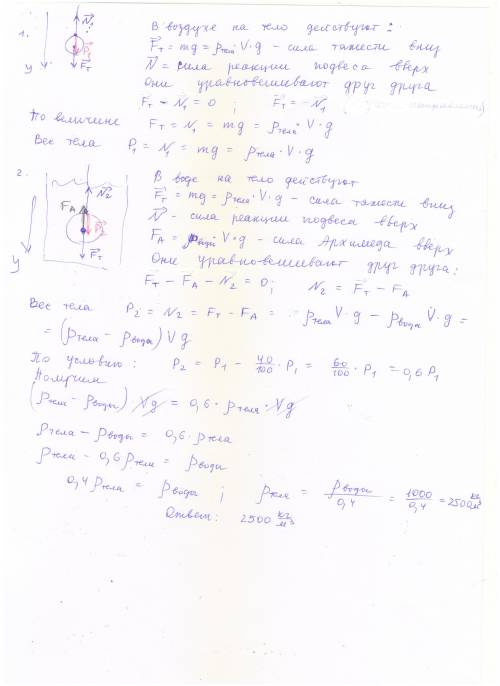 1.
N₁
P₁
Fт
y
В воздухе на тело действуют:
Fт = mg = ρтела·V·g - сила тяжести вниз
N - сила реакции подвеса вверх
Они уравновешивают друг друга
Fт - N₁ = 0 ; Fт = -N₁
По величине Fт = N₁ = mg = ρтела·V·g
Вес тела P₁ = N₁ = mg = ρтела·V·g
2.
N₂
FA
Fт
y
В воде на тело действуют
Fт = mg = ρтела·V·g - сила тяжести вниз
N - сила реакции подвеса вверх
FA = ρводы·V·g - сила Архимеда вверх
Они уравновешивают друг друга:
Fт - FA - N₂ = 0; N₂ = Fт - FA
Вес тела P₂ = N₂ = Fт - FA = ρтела V·g - ρводы V·g =
= (ρтела - ρводы) Vg
По условию: P₂ = P₁ - 40/100 · P₁ = 60/100 · P₁ = 0,6 P₁
Получим
(ρтела - ρводы)·Vg = 0,6·ρтела·Vg
ρтела - ρводы = 0,6·ρтела
ρтела - 0,6ρтела = ρводы
0,4ρтела = ρводы ; ρтела = ρводы/0,4 = 1000/0,4 = 2500 кг/м³
Ответ: 2500 кг/м³